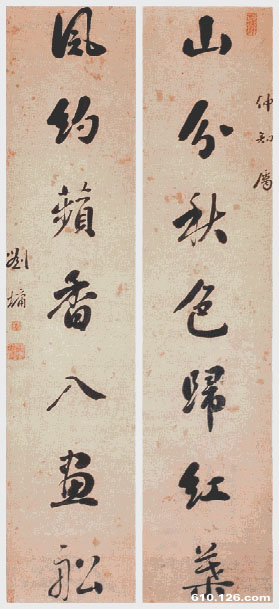 仲知屬
山分秋色歸紅葉
風約蘋香入畫船
劉墉
610.126.com